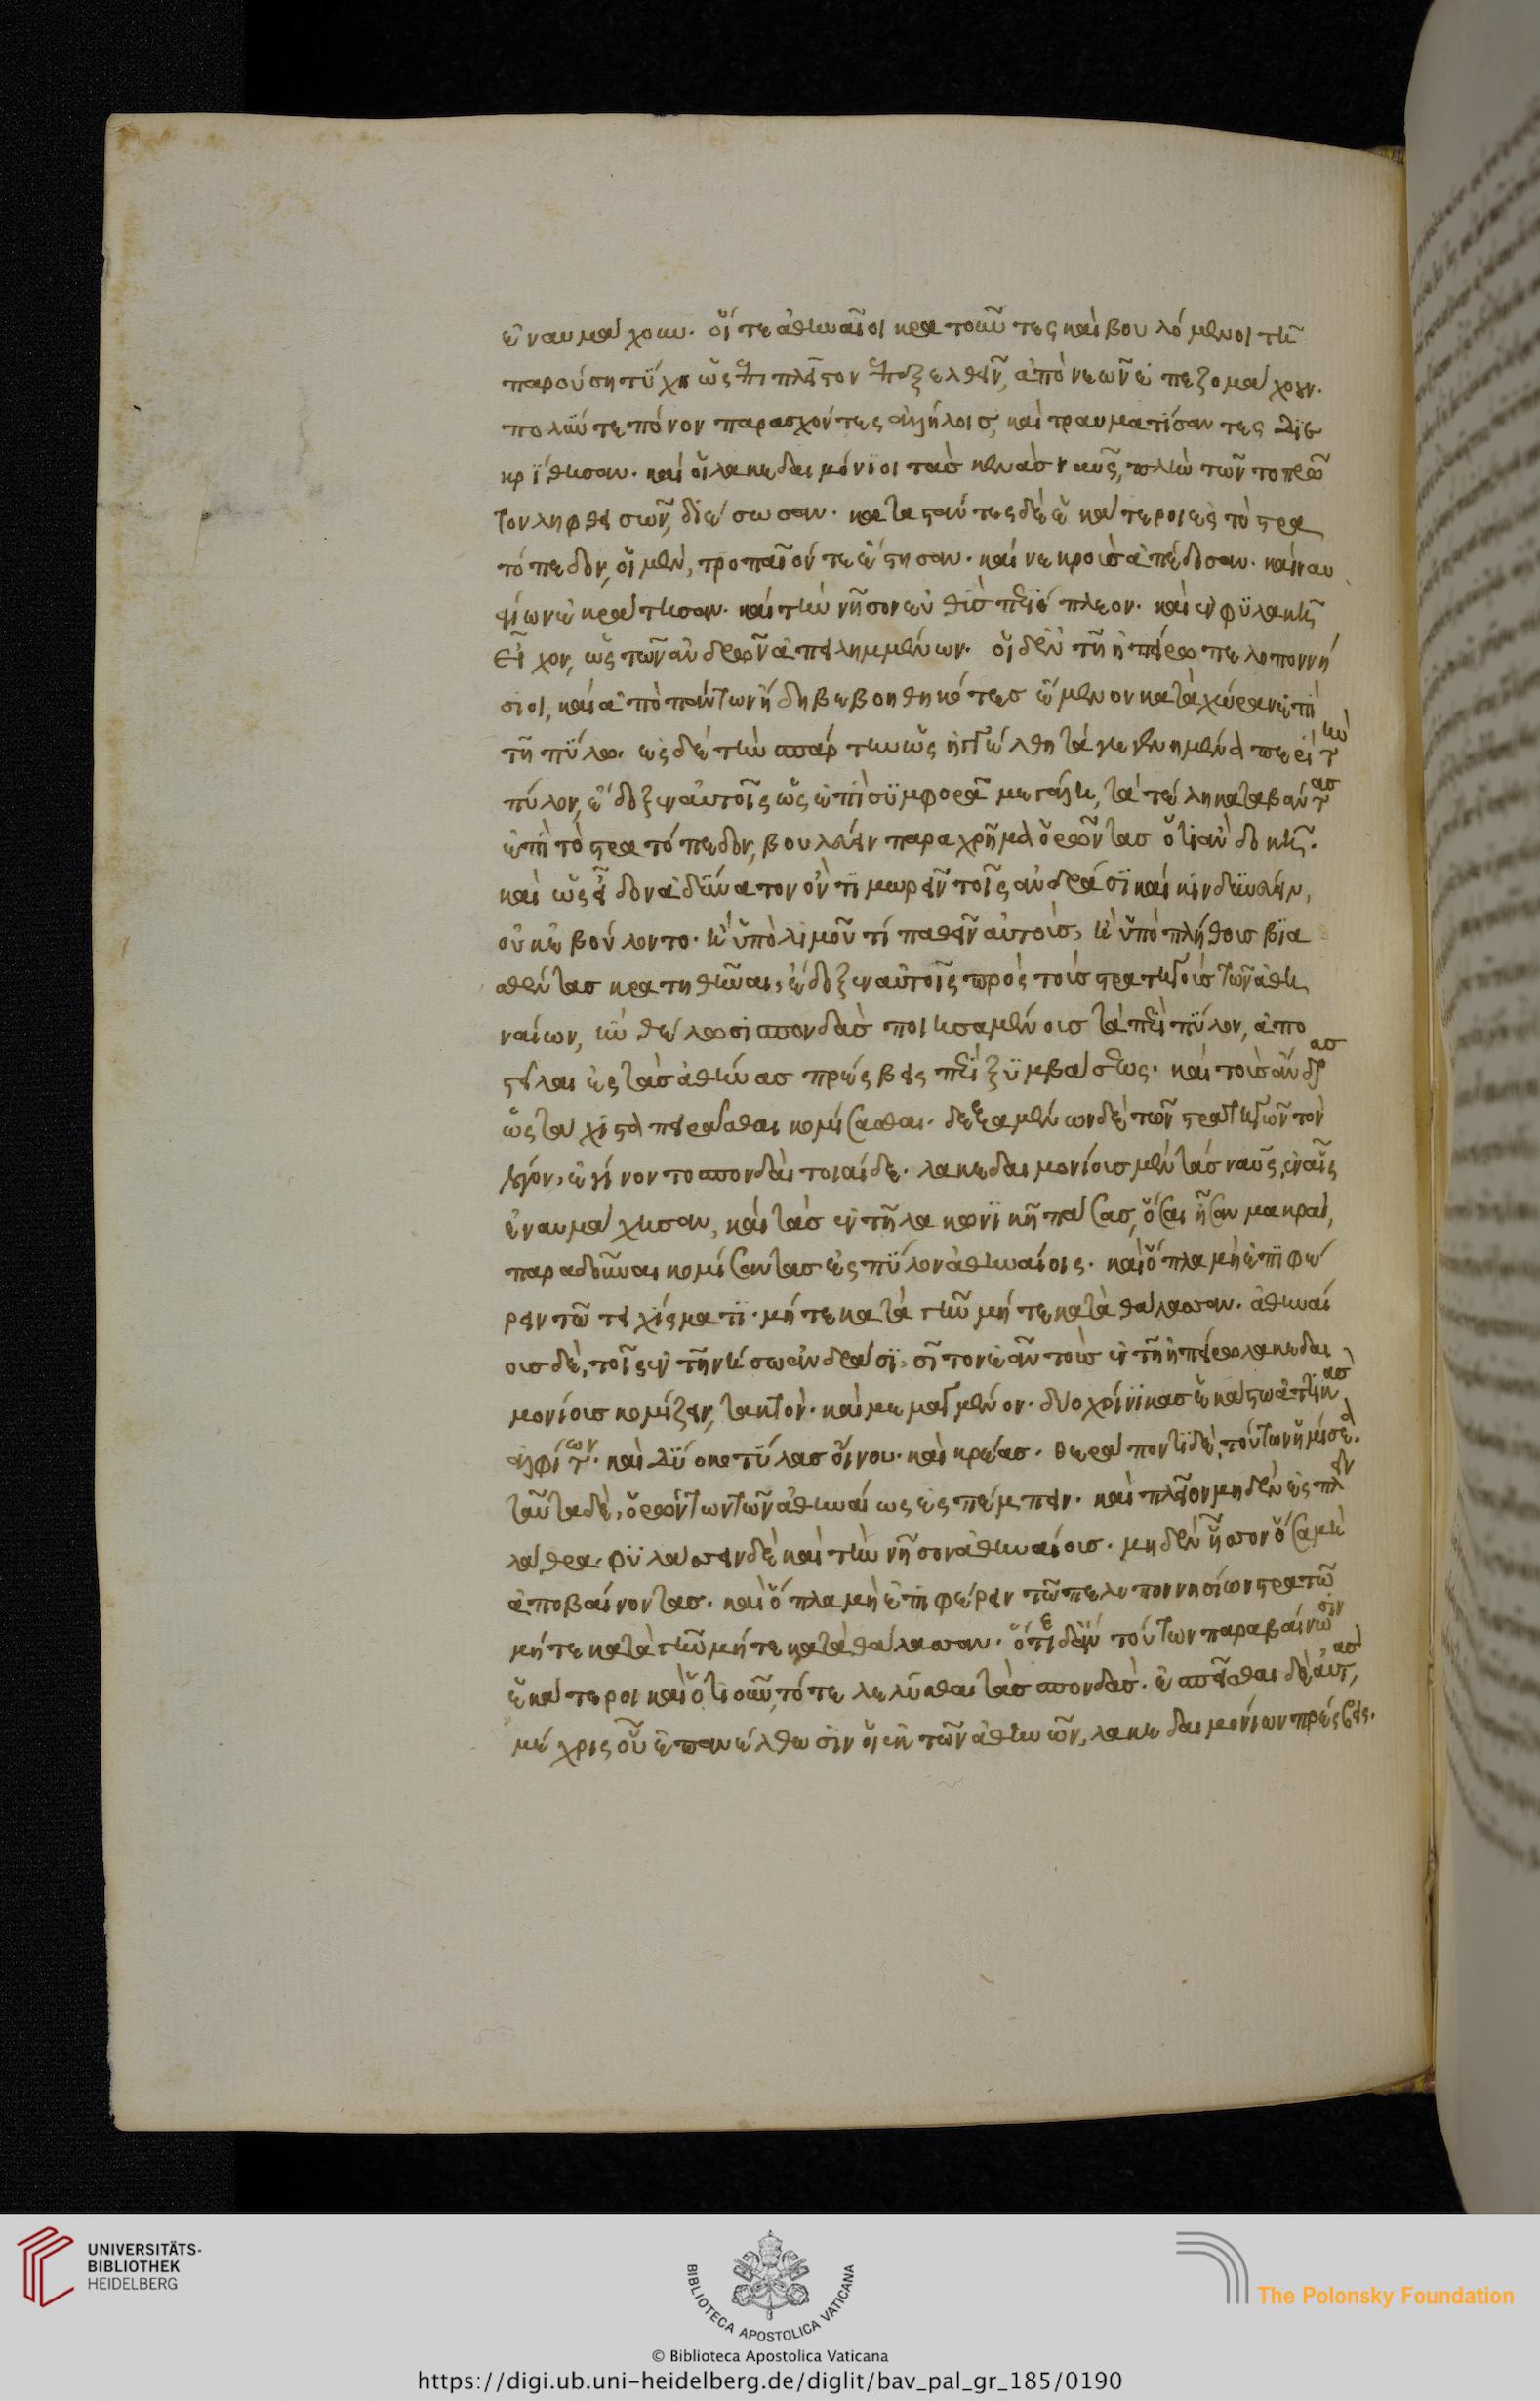 ἐναυμάχουν. οἵ τε ἀθηναῖοι κρατοῦντες καὶ βουλόμενοι τῆ
παρούση τύχη ὡς ἐπιπλεῖστον ἐπεξελθεῖν, ἀπὸ νεῶν ἐπεζομάχουν.
πολύν τε πόνον παρασχόντες ἀλλήλοις, καὶ τραυματίσαντες διε
κρίθησαν. καὶ οἱ λακεδαιμόνιοι τὰς κενὰς ναῦς, πλὴν τῶν τοπρῶ
τον ληφθεισῶν, διέσωσαν. καταστάντες δὲ ἑκάτεροι ἐς τὸ στρα
τόπεδον, οἱ μὲν, τροπαῖόν τε ἔστησαν. καὶ νεκροὺς ἀπέδοσαν. καὶ ναυ
αγίων ἐκράτησαν. καὶ τὴν νῆσον εὐθὺς περιέπλεον. καὶ ἐν φυλακῆ
εἶχον, ὡς τῶν ἀνδρῶν ἀπειλημμένων. οἱ δ' ἐν τῆ ἠπείρω πελοποννή
σιοι, καὶ ἀπὸ πάντων ἤδη βεβοηθηκότες ἔμενον κατὰ χώραν ἐπὶ
τῆ πύλω. ἐς δὲ τὴν σπάρτην ὡς ἠγγέλθη τὰ γεγενημένα περὶ τὴν
πύλον, ἔδοξεν αὐτοῖς ὡς ἐπὶ συμφορᾶ μεγάλη, τὰ τέλη καταβάντας
ἐπὶ τὸ στρατόπεδον, βουλεύειν παραχρῆμα ὁρῶντας ὅτι ἂν δοκῆ.
καὶ ὡς εἶδον ἀδύνατον ὂν τιμωρεῖν τοῖς ἀνδράσι καὶ κινδυνεύειν,
οὐκ ἐβούλοντο. ἢ ὑπὸ λιμοῦ τί παθεῖν αὐτοὺς, ἢ ὑπὸ πλήθους βια
σθέντας κρατηθῆναι, ἔδοξεν αὐτοῖς πρὸς τοὺς στρατηγοὺς τῶν ἀθη
ναίων, ἢν θέλωσι σπονδὰς ποιησαμένους τὰ περὶ πύλον, ἀπο
στεῖλαι ἐς τὰς ἀθήνας πρέσβεις περὶ ξυμβάσεως. καὶ τοὺς ἄνδρας
ὡς τάχιστα πειρᾶσθαι κομίσασθαι. δεξαμένων δὲ τῶν στρατηγῶν τὸν
λόγον, ἐγίνοντο σπονδαὶ τοιαίδε. λακεδαιμονίους μὲν τὰς ναῦς, ἐν αἷς
ἐναυμάχησαν, καὶ τὰς ἐν τῆ λακωνικῆ πάσας, ὅσαι ἦσαν μακραὶ,
παραδοῦναι κομίσαντας ἐς πύλον ἀθηναίοις. καὶ ὅπλα μὴ ἐπιφέ
ρειν τῶ τειχίσματι. μήτε κατὰ γῆν μήτε κατὰ θάλασσαν. ἀθηναί
ους δὲ, τοῖς ἐν τῆ νήσω ἀνδράσι, σῖτον ἐᾶν τοὺς ἐν τῆ ἠπείρω λακεδαι
μονίους κομίζειν, τακτὸν. καὶ μεμαγμένον. δύο χοίνικας ἑκάστω ἀττικὰς
ἀλφίτων. καὶ δύο κοτύλας οἴνου. καὶ κρέας. θεράποντι δὲ, τούτων ἡμίσεα.
ταῦτα δὲ, ὁρώντων τῶν ἀθηναίων ἐσπέμπειν. καὶ πλοῖον μηδὲν ἐσπλεῖν
λάθρα. φυλάσσειν δὲ καὶ τὴν νῆσον ἀθηναίους. μηδὲν ἧσσον ὅσα μὴ
ἀποβαίνοντας. καὶ ὅπλα μὴ ἐπιφέρειν τῶ πελοποννησίων στρατῶ
μήτε κατὰ γῆν μήτε κατὰ θάλασσαν. ὅτι δ' ἂν τούτων παραβαίνωσιν
ἑκάτεροι καὶ ὁτιοῦν, τότε λελύσθαι τὰς σπονδάς. ἐσπεῖσθαι δὲ αὐτὰς,
μέχρις οὗ ἐπανέλθωσιν οἱ ἐκ τῶν ἀθηνῶν, λακεδαιμονίων πρέσβεις.
UNIVERSITÄTS-
BIBLIOTHEK
HEIDELBERG
BIBLIOTECA APOSTOLICA VATICANA
The Polonsky Foundation
© Biblioteca Apostolica Vaticana
https://digi.ub.uni-heidelberg.de/diglit/bav_pal_gr_185/0190